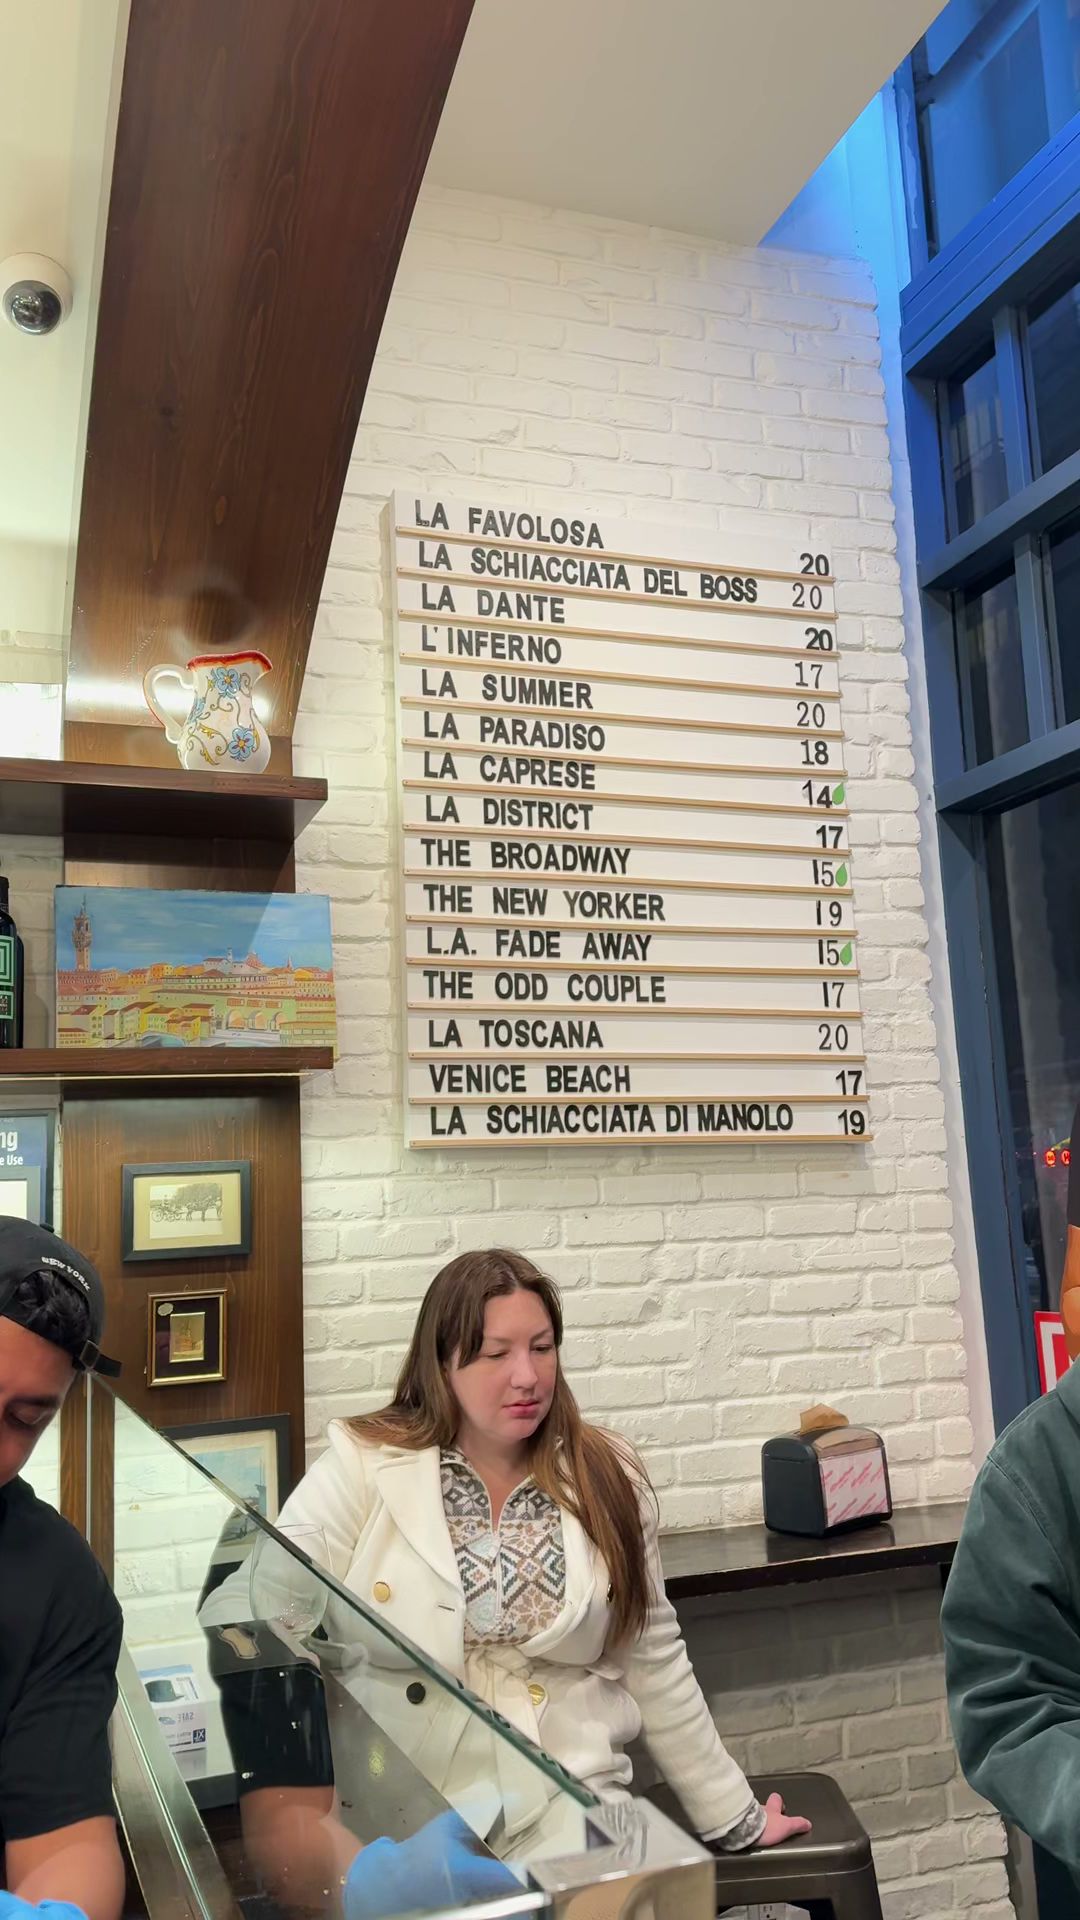 LA FAVOLOSA 20
LA SCHIACCIATA DEL BOSS 20
LA DANTE 20
L'INFERNO 17
LA SUMMER 20
LA PARADISO 18
LA CAPRESE 14
LA DISTRICT 17
THE BROADWAY 15
THE NEW YORKER 19
L.A. FADE AWAY 15
THE ODD COUPLE 17
LA TOSCANA 20
VENICE BEACH 17
LA SCHIACCIATA DI MANOLO 19
ng
e Use
NEW YORK
SAFE